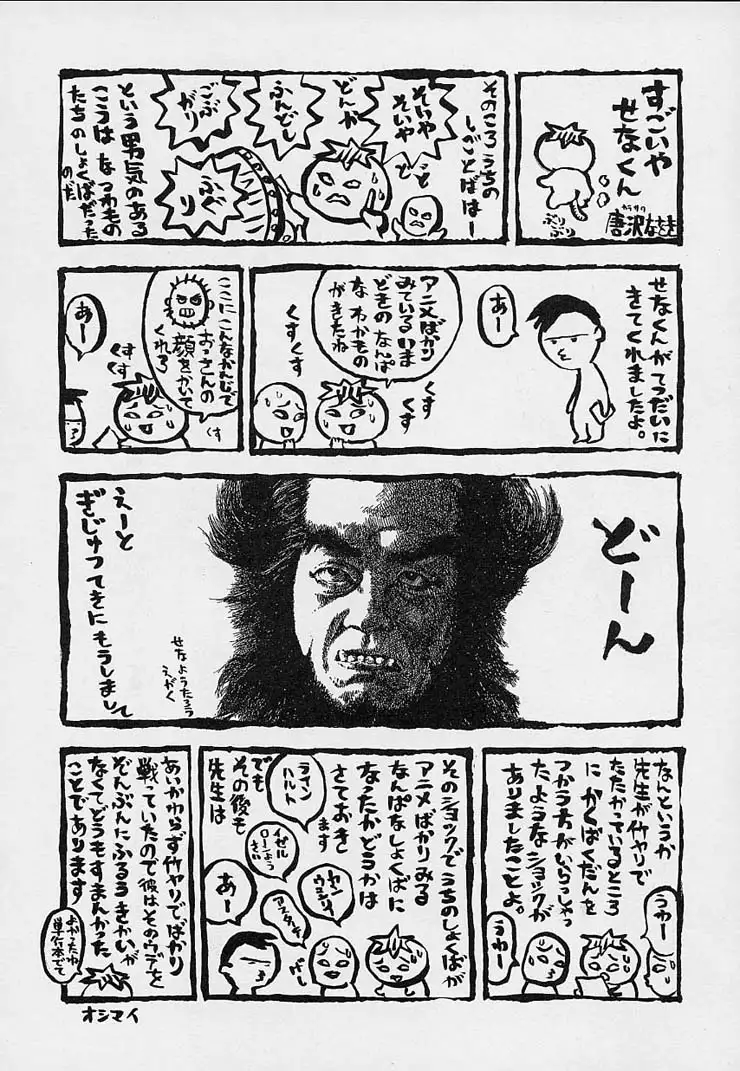 すごいや
せなくん
カラサワ
唐沢なをき
ぷり
ぷり
そのころうちの
しごとばはー
そいや
そいや
どんが
どどど
ふんどし
ごぶ
がり
ふぐ
り
という男気のある
こうはなつわもの
たちのしょくばだった
のだ
せなくんがてつだいに
きてくれましたよ。
あー
アニメばかり
みているいま
どきのなんぱ
なわかもの
がきたね
くすくす
くす
くす
ここにこんなかんじで
おっさんの
顔をかいて
くれろ
くす
くす
くす
あー
どーん
せなようたろう
えがく
えーと
ぎじゅつてきにもうしまして
なんというか
先生が竹ヤリで
たたかっているところ
にかくばくだんを
つかう方がいらっしゃっ
たようなショックが
ありましたことよ。
うわー
うわー
そのショックでうちのしょくばが
アニメばかりみる
なんぱなしょくばに
なったかどうかは
さておきし
ます
でも
その後も
先生は
ライン
ハルト
イゼル
ローンよう
さい
ヤン
ウエンリー
アスターテ
あー
あいかわらず竹ヤリでばかり
戦っていたので彼はそのウデを
ぞんぶんにふるうきかいが
なくてどうもすまんかった
ことであります
よかったね
単行本でて
オシマイ